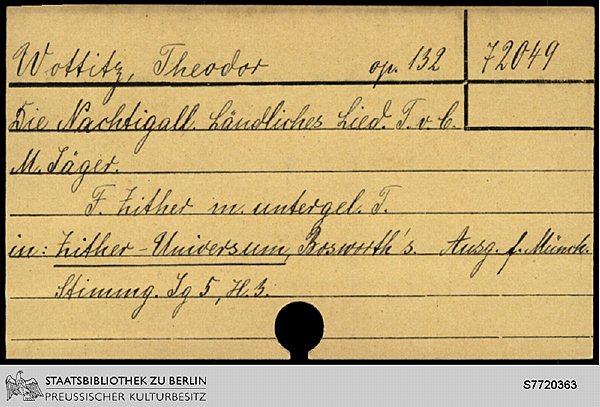 Wottitz, Theodor op. 132 72049
Die Nachtigall. Ländliches Lied. T. v. C.
M. Jäger.
F. Zither m. untergel. T.
in: Zither-Universum, Bosworth's. Ausg. f. Münch.
Stimmg. Jg 5, H. 3.
STAATSBIBLIOTHEK ZU BERLIN
PREUSSISCHER KULTURBESITZ
S7720363